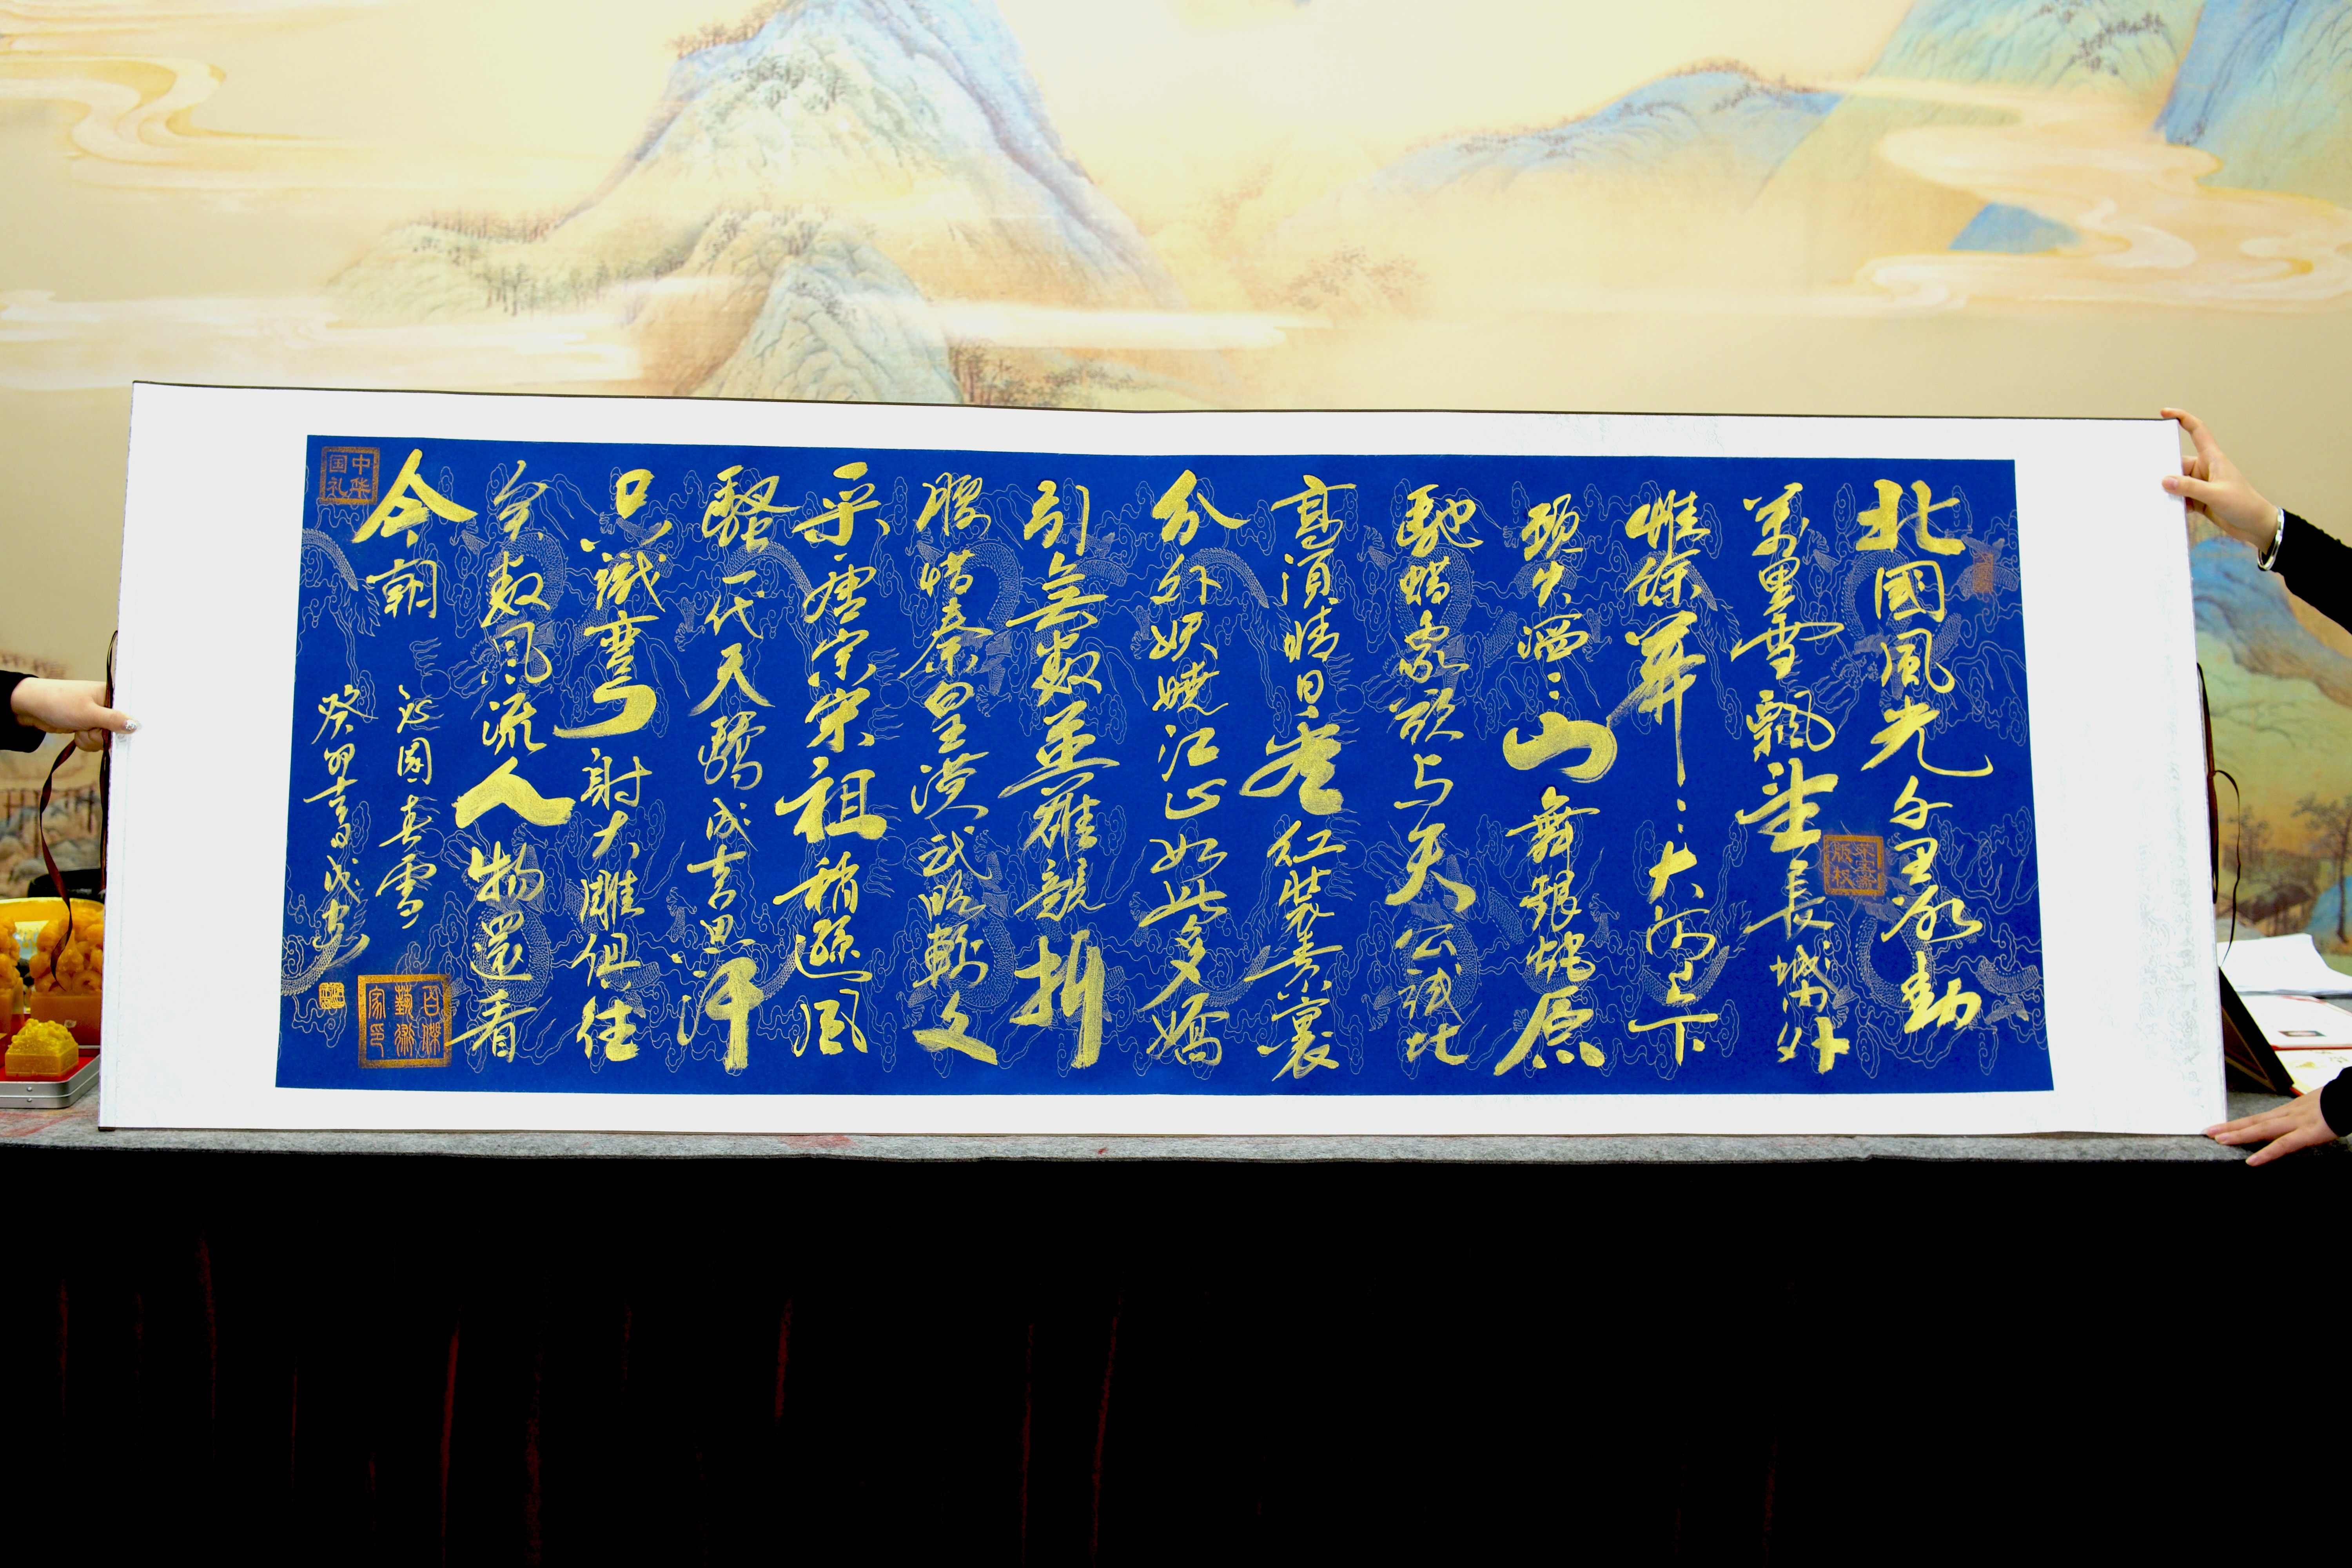 北國風光千里冰封
萬里雪飄望長城內外
惟餘莽：大河上下
頓失滔：山舞銀蛇原
馳蠟象欲与天公試比
高須晴日看紅裝素裹
分外妖嬈江山如此多嬌
引無數英雄競折
腰惜秦皇漢武略輸文
采唐宗宋祖稍遜風
騷一代天驕成吉思汗
只識彎弓射大雕俱往
矣數風流人物還看
今朝
沁園春雪
癸卯
中华国礼
百傑藝術家印